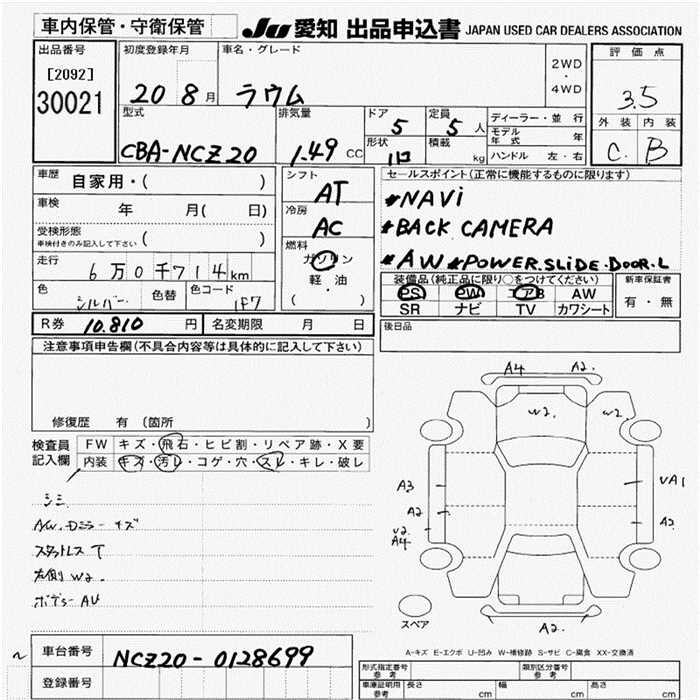 車内保管・守衛保管
JU 愛知 出品申込書 JAPAN USED CAR DEALERS ASSOCIATION
出品番号
[2092]
30021
初度登録年月
20 8月
車名・グレード
ラウム
2WD
・
4WD
評価点
3.5
外装 内装
C. B
型式
CBA-NCZ20
排気量
1.49 CC
ドア
5
形状
定員
5 人
積載
kg
ディーラー・並行
モデル年式 年
ハンドル 左・右
車歴
自家用・( )
車検
年 月( 日)
受検形態
車検付きのみ記入して下さい ( )
走行
6万0千714km
色
シルバー
色替
色コード
1F7
シフト
AT
冷房
AC
燃料
ガソリン
軽・油
( )
セールスポイント(正常に機能するものに限ります)
*NAVi
*BACK CAMERA
*AW *POWER.SLiDE.DOOR.L
装備品(純正品に限り○をつけてください)
PS PW エアB AW
SR ナビ TV カワシート
新車保証書
有・無
R券 10.810 円
名変期限 月 日
後日品
注意事項申告欄(不具合内容等は具体的に記入して下さい)
修復歴 有 (箇所 )
検査員
記入欄
FW キズ・飛石・ヒビ割・リペア跡・X要
内装 キズ・汚レ・コゲ・穴・スレ・キレ・破レ
シミ
AW.Dミラーキズ
スタットレス T
左側 W2.
ボデーAU
A4 A2.
W2. W2.
A3
A2
U2
A4
UA1
A2
A2.
スペア
A-キズ E-エクボ U-凹み W-補修跡 S-サビ C-腐食 XX-交換済
車台番号
NCZ20-0128699
登録番号
形式指定番号
参考
類別区分番号
参考
車庫証明用
参考
長さ cm
幅 cm
高さ cm